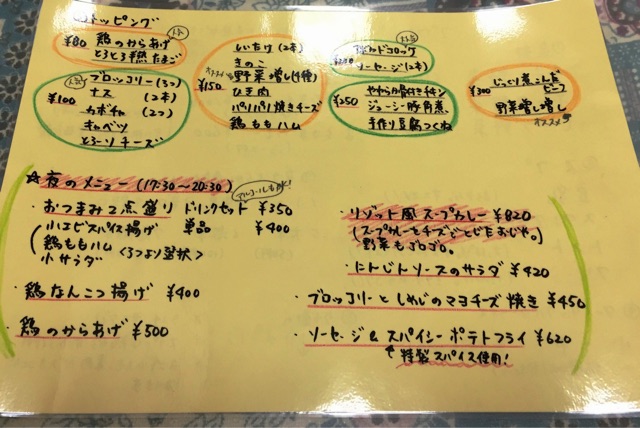 トッピング
¥80
人気
鶏のからあげ
とろとろ半熟たまご
¥100
人気
ブロッコリー(3つ)
ナス(2本)
カボチャ(2つ)
キャベツ
とろーりチーズ
¥150
しいたけ(2本)
きのこ
オススメ
野菜増し(1種)
ひき肉
パリパリ焼きチーズ
鶏ももハム
コロッケ
ソーセージ(2本)
¥250
やわらか骨付きチキン
ジューシー豚角煮
手作り豆腐つくね
¥300
じっくり煮こんだ
ビーフ
野菜増し増し
オススメ
☆夜のメニュー(17:30〜20:30)
アルコールも有!
・おつまみ2点盛り ドリンクセット ¥350
小エビスパイス揚げ 単品 ¥400
鶏ももハム
小サラダ <3つより選択>
・鶏なんこつ揚げ ¥400
・鶏のからあげ ¥500
・リゾット風スープカレー ¥820
(スープカレーとチーズでとじたおじや。
野菜もゴロゴロ。)
・にんじんソースのサラダ ¥420
・ブロッコリーとしめじのマヨチーズ焼き ¥450
・ソーセージ&スパイシーポテトフライ ¥620
特製スパイス使用!